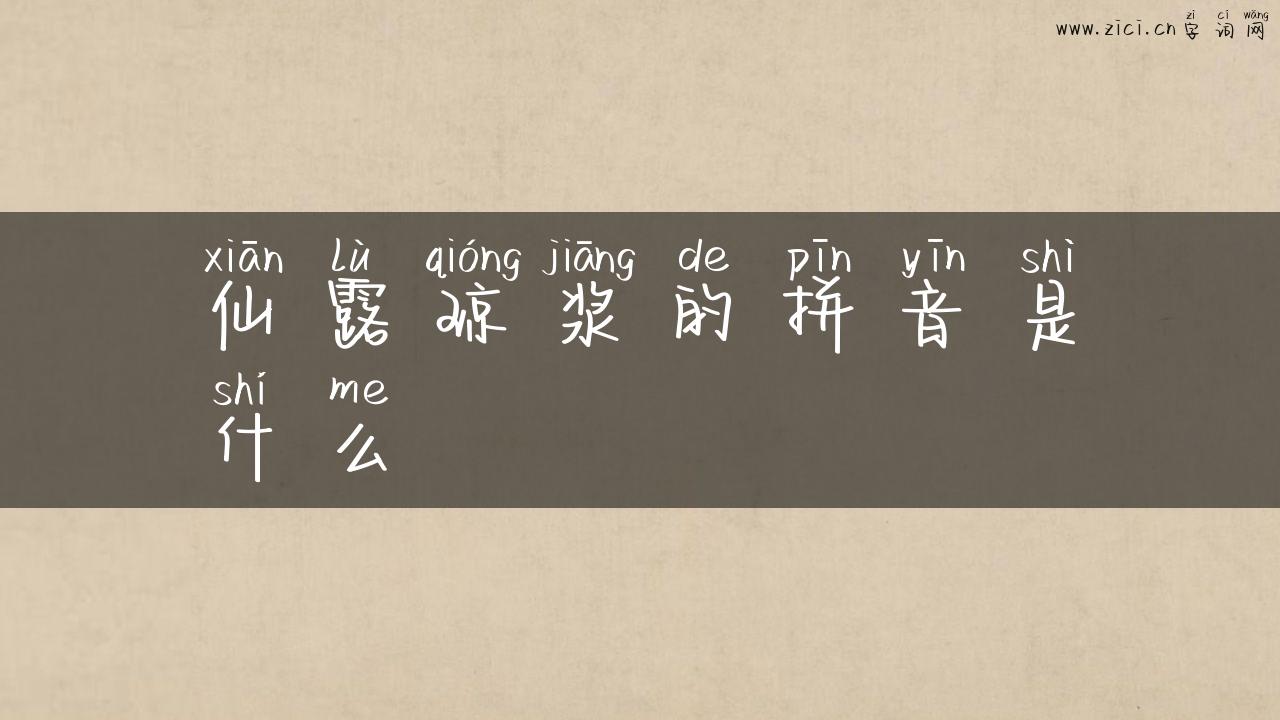 zì cí wǎng
www.zici.cn 字词网
xiān lù qióng jiāng de pīn yīn shì
仙露琼浆的拼音是
shí me
什么